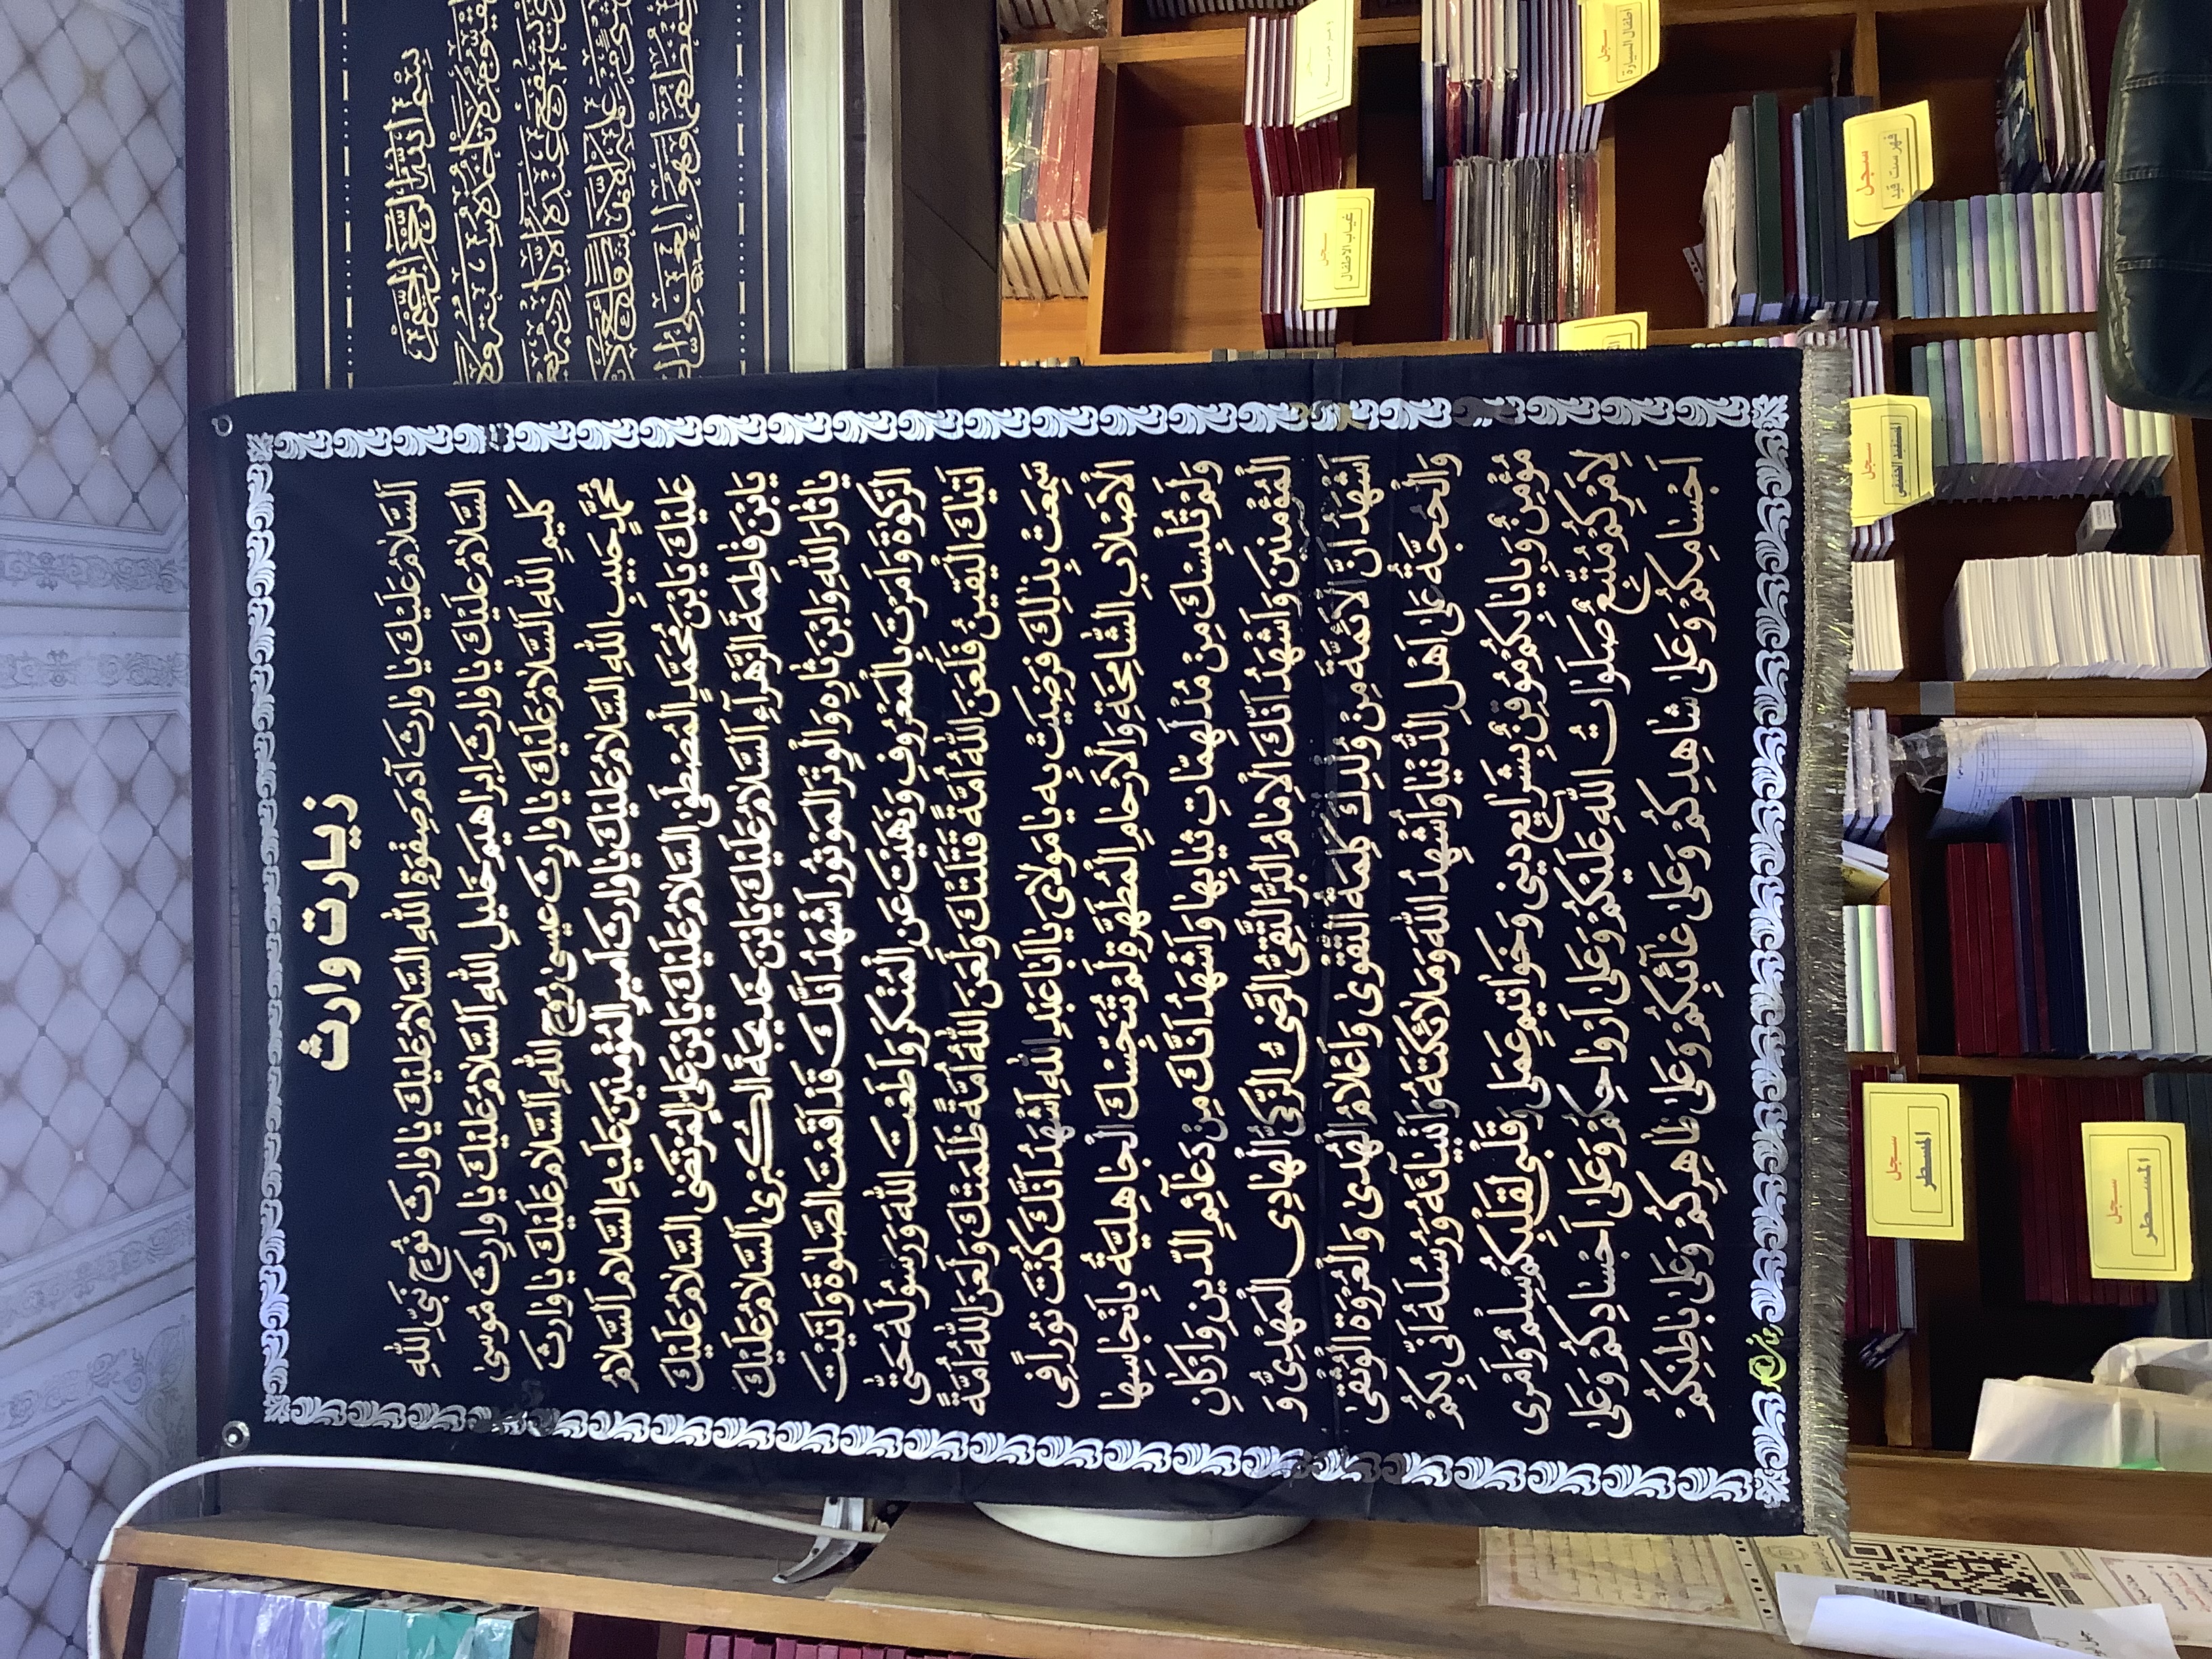 زيارت وارث
اَلسَّلامُ عَلَيْكَ يا وارِثَ آدَمَ صِفْوَةِ اللهِ اَلسَّلامُ عَلَيْكَ يا وارِثَ نُوحٍ نَبِيِّ اللهِ
اَلسَّلامُ عَلَيْكَ يا وارِثَ اِبْراهيمَ خَليلِ اللهِ اَلسَّلامُ عَلَيْكَ يا وارِثَ مُوسىٰ
كَليمِ اللهِ اَلسَّلامُ عَلَيْكَ يا وارِثَ عيسىٰ رُوحِ اللهِ اَلسَّلامُ عَلَيْكَ يا وارِثَ
مُحَمَّدٍ حَبيبِ اللهِ اَلسَّلامُ عَلَيْكَ يا وارِثَ اَميرِ الْمُؤْمِنينَ عَلَيْهِ السَّلامُ اَلسَّلامُ
عَلَيْكَ يَابْنَ مُحَمَّدٍ الْمُصْطَفىٰ اَلسَّلامُ عَلَيْكَ يَابْنَ عَلِيٍّ الْمُرْتَضىٰ اَلسَّلامُ عَلَيْكَ
يَابْنَ فاطِمَةَ الزَّهْراءِ اَلسَّلامُ عَلَيْكَ يَابْنَ خَديجَةَ الْكُبْرىٰ اَلسَّلامُ عَلَيْكَ
يا ثارَ اللهِ وَابْنَ ثارِهِ وَالْوِتْرَ الْمَوْتُورَ اَشْهَدُ اَنَّكَ قَدْ اَقَمْتَ الصَّلٰوةَ وَآتَيْتَ
الزَّكٰوةَ وَاَمَرْتَ بِالْمَعْرُوفِ وَنَهَيْتَ عَنِ الْمُنْكَرِ وَاَطَعْتَ اللهَ وَرَسُولَهُ حَتّىٰ
اَتيٰكَ الْيَقينُ فَلَعَنَ اللهُ اُمَّةً قَتَلَتْكَ وَلَعَنَ اللهُ اُمَّةً ظَلَمَتْكَ وَلَعَنَ اللهُ اُمَّةً
سَمِعَتْ بِذٰلِكَ فَرَضِيَتْ بِهِ يا مَوْلايَ يا اَبا عَبْدِ اللهِ اَشْهَدُ اَنَّكَ كُنْتَ نُوراً فِي
الْاَصْلابِ الشّامِخَةِ وَالْاَرْحامِ الْمُطَهَّرَةِ لَمْ تُنَجِّسْكَ الْجاهِلِيَّةُ بِاَنْجاسِها
وَلَمْ تُلْبِسْكَ مِنْ مُدْلَهِمّاتِ ثِيابِها وَاَشْهَدُ اَنَّكَ مِنْ دَعائِمِ الدّينِ وَاَرْكانِ
الْمُؤْمِنينَ وَاَشْهَدُ اَنَّكَ الْاِمامُ الْبَرُّ التَّقِيُّ الرَّضِيُّ الزَّكِيُّ الْهادِي الْمَهْدِيُّ وَ
اَشْهَدُ اَنَّ الْاَئِمَّةَ مِنْ وُلْدِكَ كَلِمَةُ التَّقْوىٰ وَاَعْلامُ الْهُدىٰ وَالْعُرْوَةُ الْوُثْقىٰ
وَالْحُجَّةُ عَلىٰ اَهْلِ الدُّنْيا وَاُشْهِدُ اللهَ وَمَلائِكَتَهُ وَاَنْبِيائَهُ وَرُسُلَهُ اَنّي بِكُمْ
مُؤْمِنٌ وَبِاِيابِكُمْ مُوقِنٌ بِشَرايِعِ ديني وَخَواتيمِ عَمَلي وَقَلْبي لِقَلْبِكُمْ سِلْمٌ وَاَمْري
لِاَمْرِكُمْ مُتَّبِعٌ صَلَواتُ اللهِ عَلَيْكُمْ وَعَلىٰ اَرْواحِكُمْ وَعَلىٰ اَجْسادِكُمْ وَعَلىٰ
اَجْسامِكُمْ وَعَلىٰ شاهِدِكُمْ وَعَلىٰ غائِبِكُمْ وَعَلىٰ ظاهِرِكُمْ وَعَلىٰ باطِنِكُمْ
بِسْمِ اللهِ الرَّحْمٰنِ الرَّحِيمِ
سجل
اطفال السيارة
سجل
غياب الاطفال
سجل
فهرست قيد
سجل
سجل
المسطر
سجل
المسطر